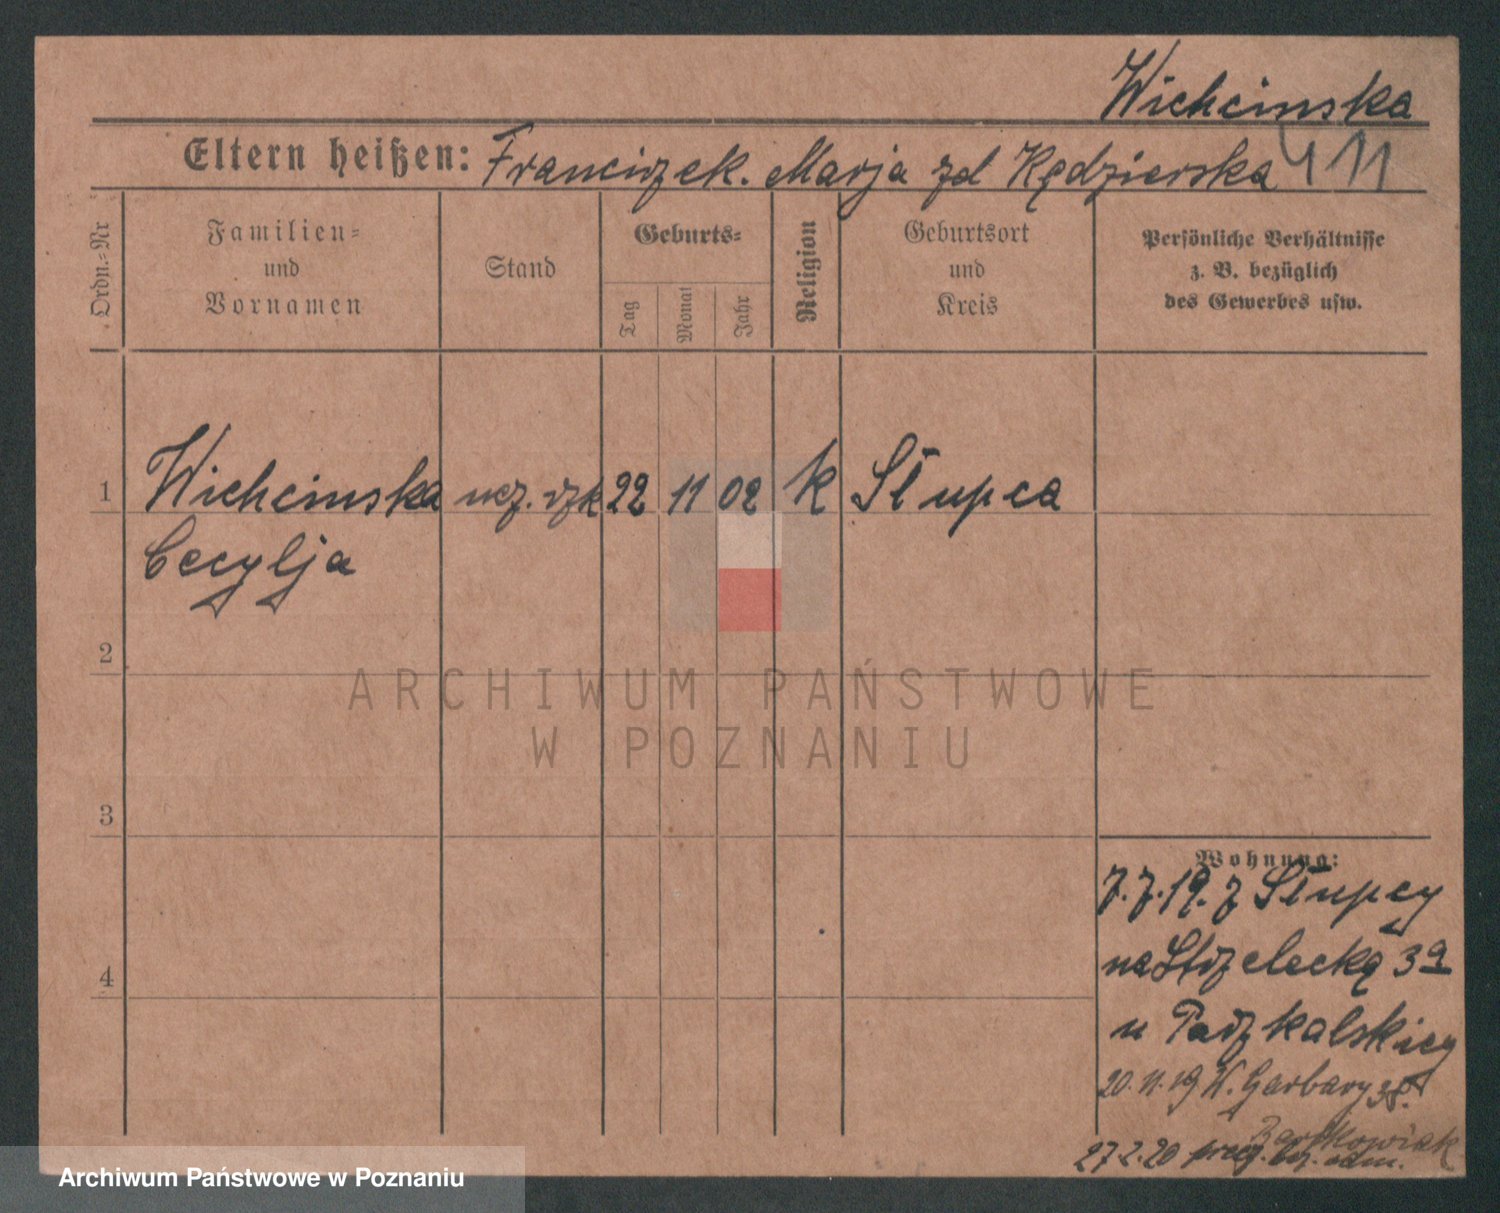 Wichcinska
Eltern heißen: Franciszek. Marja zd Kędzierska 411
Ordn.-Nr
Familien-
und
Vornamen
Stand
Geburts-
Tag
Monat
Jahr
Religion
Geburtsort
und
Kreis
Persönliche Verhältnisse
z. B. bezüglich
des Gewerbes usw.
1 Wichcinska ucz. szk 22 11 02 k Słupca
Cecylja
2
3
4
Wohnung:
7.7.19. z Słupcy
na Strzelecką 39
u
20.11.19 W. Garbary 38.
Bartkowiak
27.2.20
ARCHIWUM PAŃSTWOWE
W POZNANIU
Archiwum Państwowe w Poznaniu